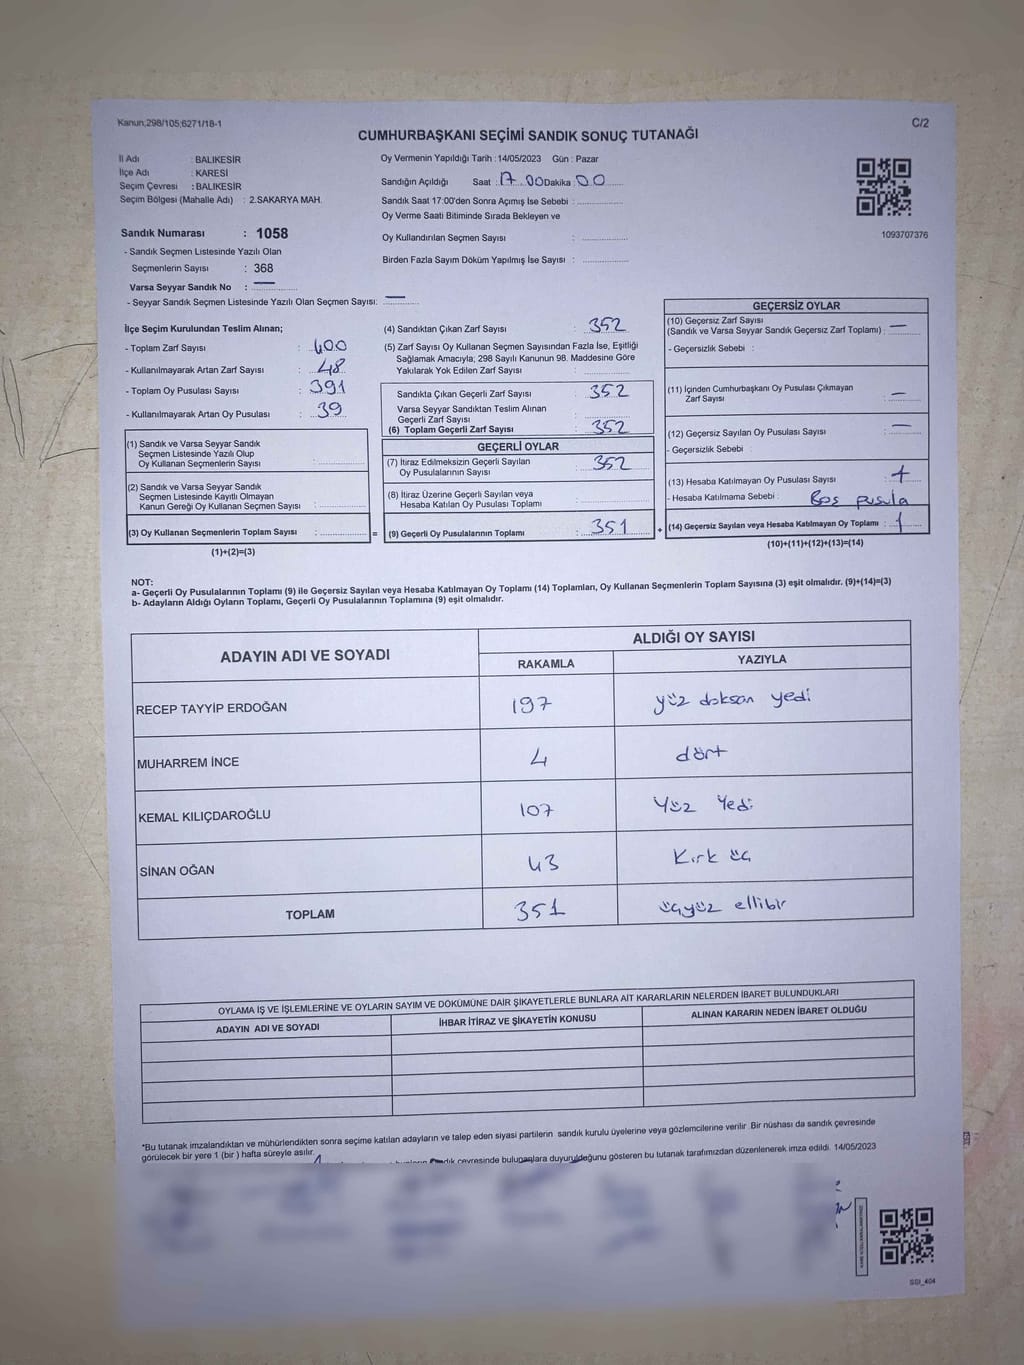 Kanun;298/105;6271/18-1
C/2
CUMHURBAŞKANI SEÇİMİ SANDIK SONUÇ TUTANAĞI
İl Adı : BALIKESİR
İlçe Adı : KARESİ
Seçim Çevresi : BALIKESİR
Seçim Bölgesi (Mahalle Adı) : 2.SAKARYA MAH.
Oy Vermenin Yapıldığı Tarih : 14/05/2023 Gün : Pazar
Sandığın Açıldığı Saat : 17.00 Dakika : 00
Sandık Saat 17:00'den Sonra Açımış İse Sebebi :
Oy Verme Saati Bitiminde Sırada Bekleyen ve
Oy Kullandırılan Seçmen Sayısı :
Birden Fazla Sayım Döküm Yapılmış İse Sayısı :
1093707376
Sandık Numarası : 1058
- Sandık Seçmen Listesinde Yazılı Olan
Seçmenlerin Sayısı : 368
Varsa Seyyar Sandık No : —
- Seyyar Sandık Seçmen Listesinde Yazılı Olan Seçmen Sayısı: —
İlçe Seçim Kurulundan Teslim Alınan;
- Toplam Zarf Sayısı : 400
- Kullanılmayarak Artan Zarf Sayısı : 48
- Toplam Oy Pusulası Sayısı : 391
- Kullanılmayarak Artan Oy Pusulası : 39
(1) Sandık ve Varsa Seyyar Sandık
Seçmen Listesinde Yazılı Olup
Oy Kullanan Seçmenlerin Sayısı :
(2) Sandık ve Varsa Seyyar Sandık
Seçmen Listesinde Kayıtlı Olmayan
Kanun Gereği Oy Kullanan Seçmen Sayısı :
(3) Oy Kullanan Seçmenlerin Toplam Sayısı : =
(1)+(2)=(3)
(4) Sandıktan Çıkan Zarf Sayısı : 352
(5) Zarf Sayısı Oy Kullanan Seçmen Sayısından Fazla İse, Eşitliği
Sağlamak Amacıyla; 298 Sayılı Kanunun 98. Maddesine Göre
Yakılarak Yok Edilen Zarf Sayısı :
Sandıkta Çıkan Geçerli Zarf Sayısı : 352
Varsa Seyyar Sandıktan Teslim Alınan
Geçerli Zarf Sayısı :
(6) Toplam Geçerli Zarf Sayısı : 352
GEÇERLİ OYLAR
(7) İtiraz Edilmeksizin Geçerli Sayılan
Oy Pusulalarının Sayısı : 352
(8) İtiraz Üzerine Geçerli Sayılan veya
Hesaba Katılan Oy Pusulası Toplamı :
(9) Geçerli Oy Pusulalarının Toplamı : 351 +
GEÇERSİZ OYLAR
(10) Geçersiz Zarf Sayısı
(Sandık ve Varsa Seyyar Sandık Geçersiz Zarf Toplamı) : —
- Geçersizlik Sebebi :
(11) İçinden Cumhurbaşkanı Oy Pusulası Çıkmayan
Zarf Sayısı : —
(12) Geçersiz Sayılan Oy Pusulası Sayısı : —
- Geçersizlik Sebebi :
(13) Hesaba Katılmayan Oy Pusulası Sayısı : 1
- Hesaba Katılmama Sebebi : Boş pusula
(14) Geçersiz Sayılan veya Hesaba Katılmayan Oy Toplamı : 1
(10)+(11)+(12)+(13)=(14)
NOT:
a- Geçerli Oy Pusulalarının Toplamı (9) ile Geçersiz Sayılan veya Hesaba Katılmayan Oy Toplamı (14) Toplamları, Oy Kullanan Seçmenlerin Toplam Sayısına (3) eşit olmalıdır. (9)+(14)=(3)
b- Adayların Aldığı Oyların Toplamı, Geçerli Oy Pusulalarının Toplamına (9) eşit olmalıdır.
ADAYIN ADI VE SOYADI
ALDIĞI OY SAYISI
RAKAMLA YAZIYLA
RECEP TAYYİP ERDOĞAN 197 yüz doksan yedi
MUHARREM İNCE 4 dört
KEMAL KILIÇDAROĞLU 107 Yüz Yedi
SİNAN OĞAN 43 Kırk üç
TOPLAM 351 üçyüz ellibir
OYLAMA İŞ VE İŞLEMLERİNE VE OYLARIN SAYIM VE DÖKÜMÜNE DAİR ŞİKAYETLERLE BUNLARA AİT KARARLARIN NELERDEN İBARET BULUNDUKLARI
ADAYIN ADI VE SOYADI İHBAR İTİRAZ VE ŞİKAYETİN KONUSU ALINAN KARARIN NEDEN İBARET OLDUĞU
*Bu tutanak imzalandıktan ve mühürlendikten sonra seçime katılan adayların ve talep eden siyasi partilerin sandık kurulu üyelerine veya gözlemcilerine verilir. Bir nüshası da sandık çevresinde
görülecek bir yere 1 (bir) hafta süreyle asılır.
çevresinde bulunanlara duyurulduğunu gösteren bu tutanak tarafımızdan düzenlenerek imza edildi. 14/05/2023
SSI_404